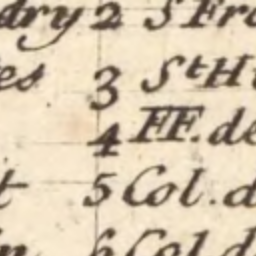 dry 2 S Fra
es 3 St H
4 FF. de
t 5 Col. d
in 6 Col d